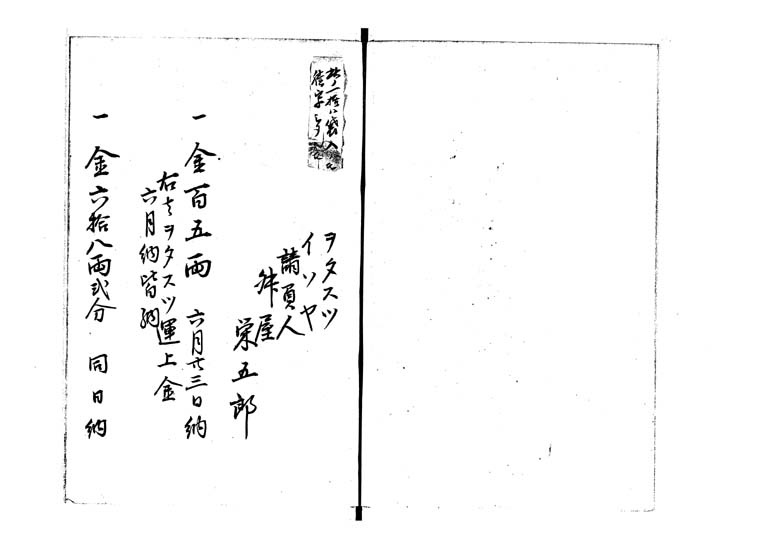 ヲタスツ
イソヤ
請負人
桝屋
栄五郎
一金百五両 六月廿三日納
右者ヲタスツ運上金
六月納皆納
一金六拾八両弐分 同日納